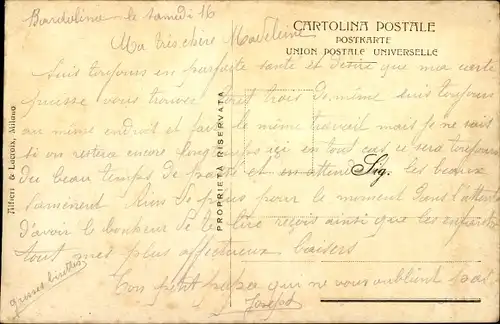 Bardolino le samedi 16
CARTOLINA POSTALE
POSTKARTE
UNION POSTALE UNIVERSELLE
Ma très chère Madeleine
Suis toujours en parfaite santé et désire que ma carte
puisse vous trouver tous trois de même suis toujours
au même endroit et fais le même travail mais je ne sais
si on restera encore longtemps ici en tout cas ce sera toujours
du beau temps de passé et en attend les beaux
Sig.
rien de plus pour le moment dans l'attente
d'avoir le bonheur de te lire reçois ainsi que les enfants
tout mes plus affectueux baisers
Ton petit papa qui ne vous oublient pas
Joseph
grosses bisettes
Alfieri & Lacroix, Milano
PROPRIETÀ RISERVATA